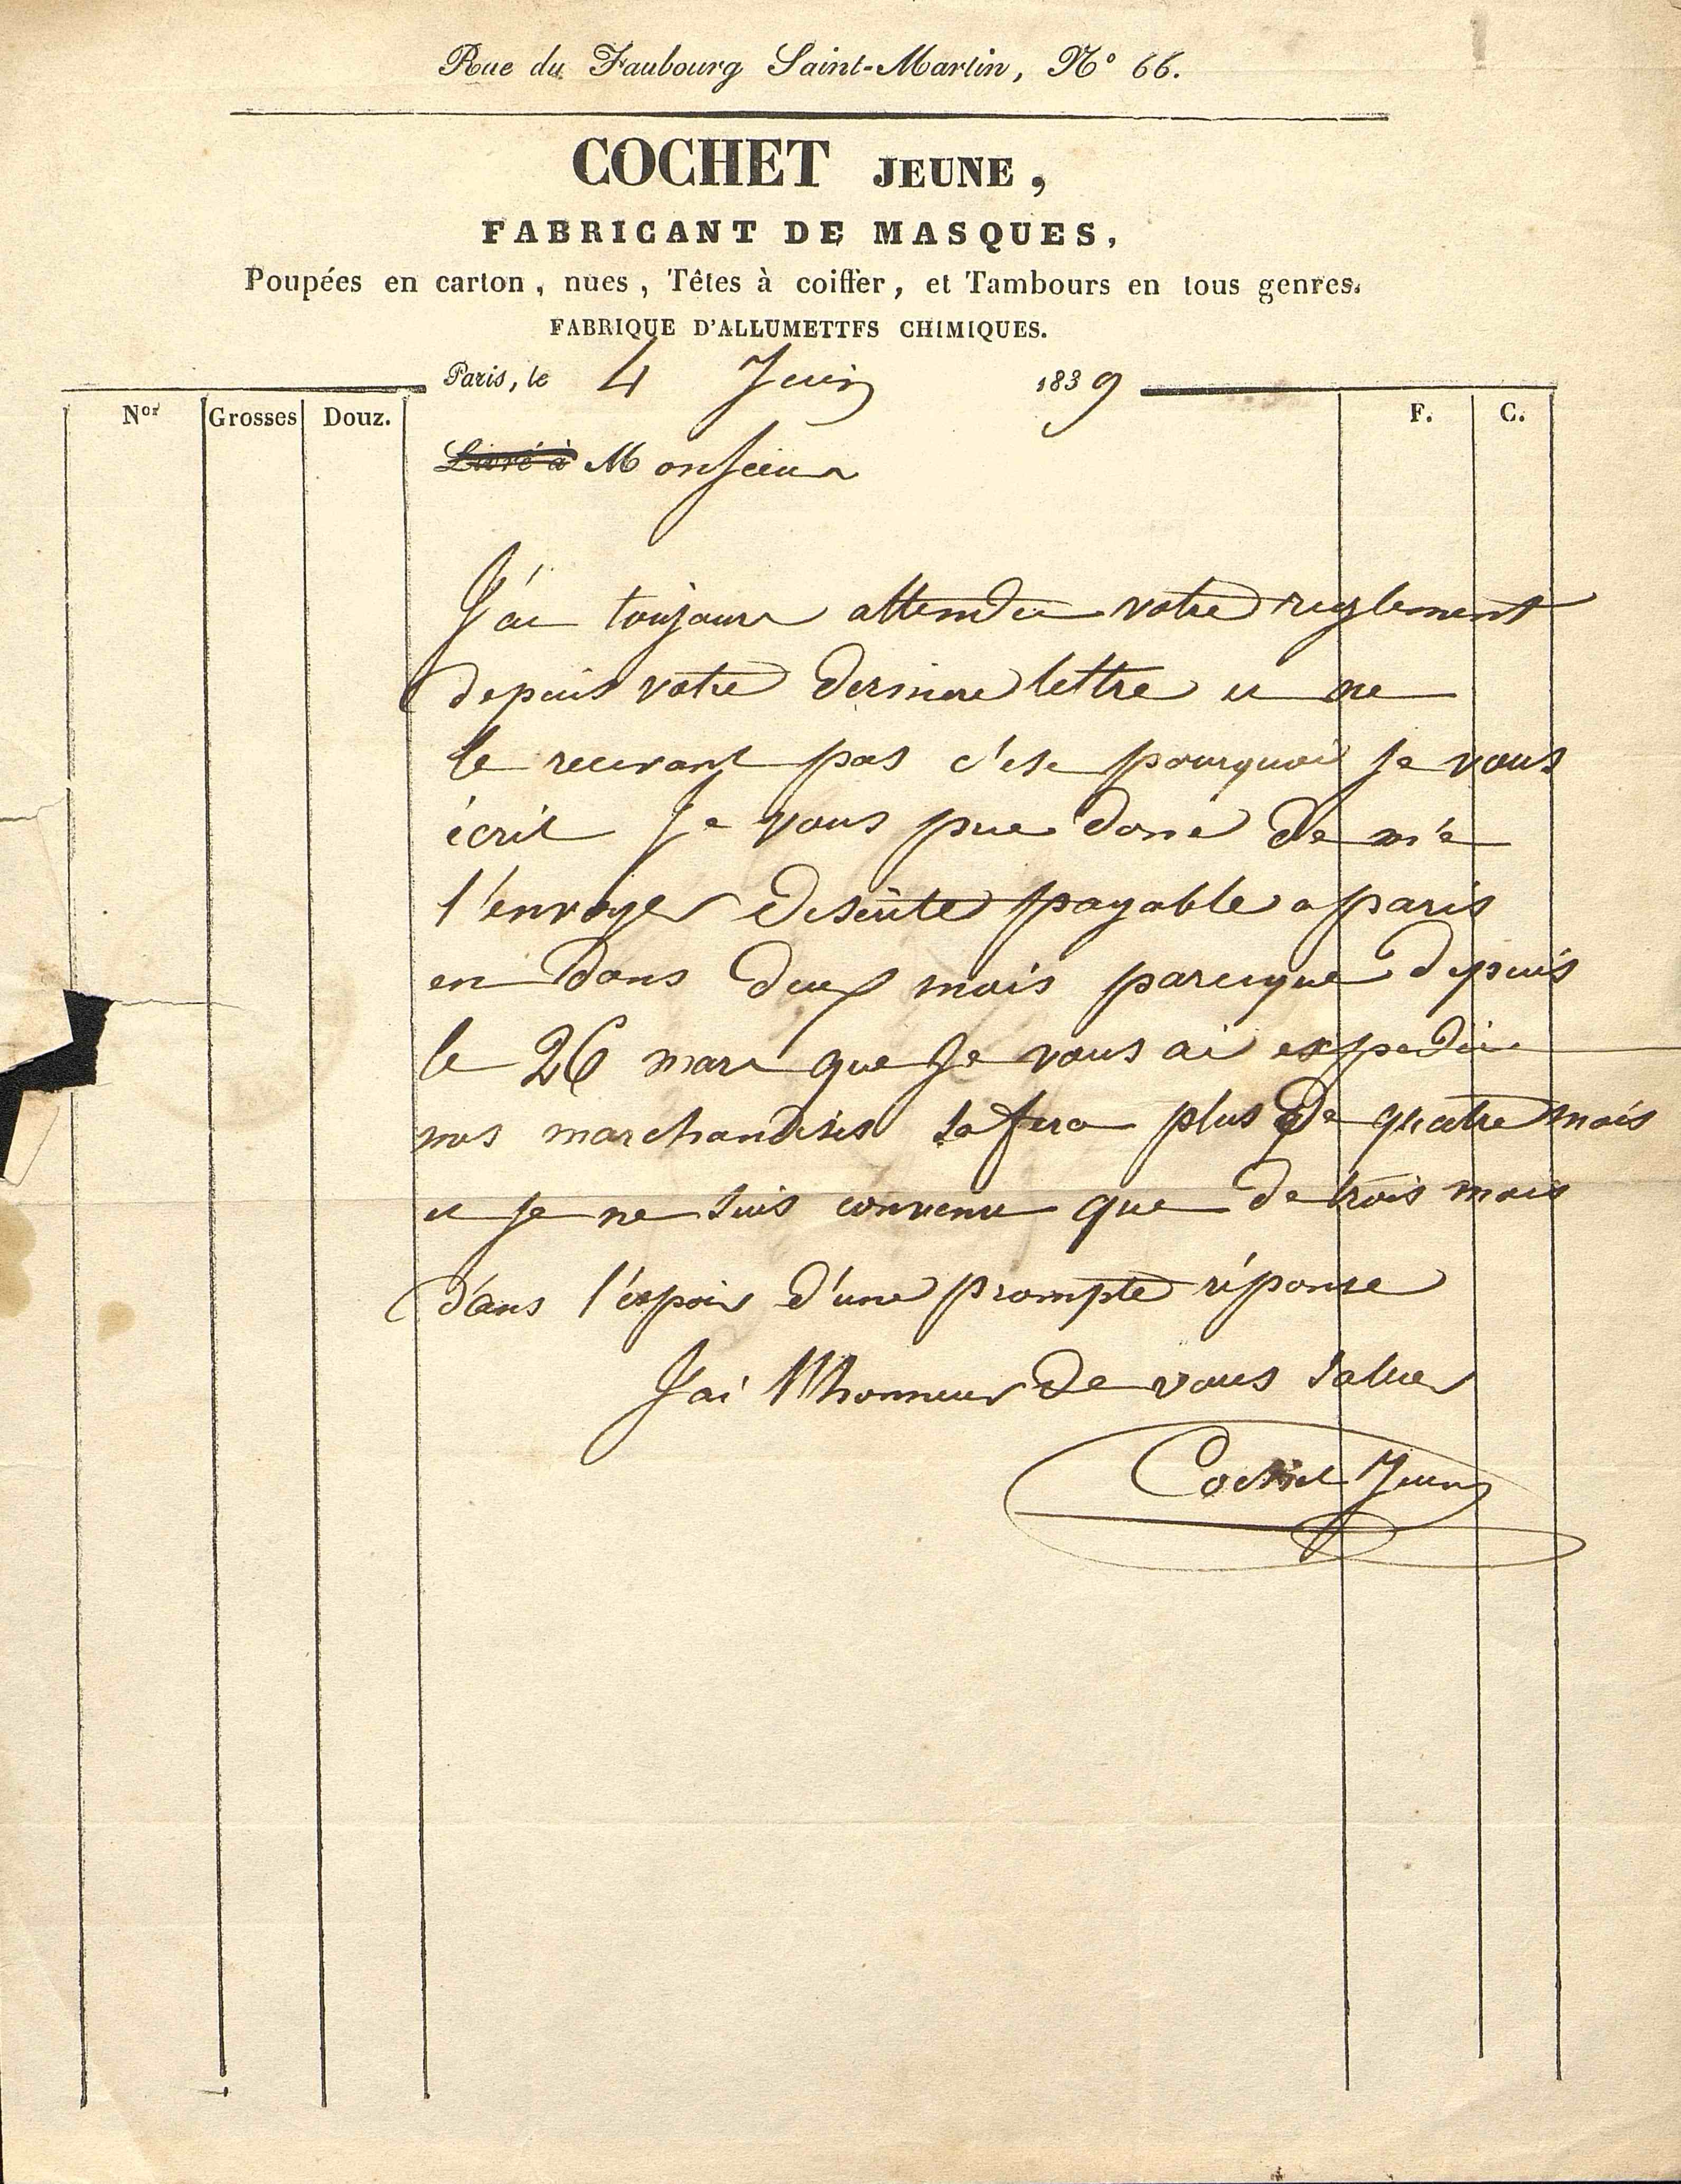 Rue du Faubourg Saint-Martin, N° 66.
COCHET JEUNE,
FABRICANT DE MASQUES,
Poupées en carton, nues, Têtes à coiffer, et Tambours en tous genres.
FABRIQUE D'ALLUMETTES CHIMIQUES.
Paris, le 4 Juin 1839
Nos Grosses Douz. F. C.
Livré à Monsieur
J'ai toujours attendu votre reglement
depuis votre derniere lettre et ne
le recevant pas c'est pourquoi Je vous
écrit Je vous prie donc de m'e
l'envoyer desuite payable a paris
en dans deux mois parceque depuis
le 26 mars que Je vous ai expedié
mes marchandises sa fera plus de quatre mois
et Je ne suis convenu que de trois mois
d'ans l'éspoir d'une prompte réponse
J'ai l'honneur de vous saluer
Cochet Jeune